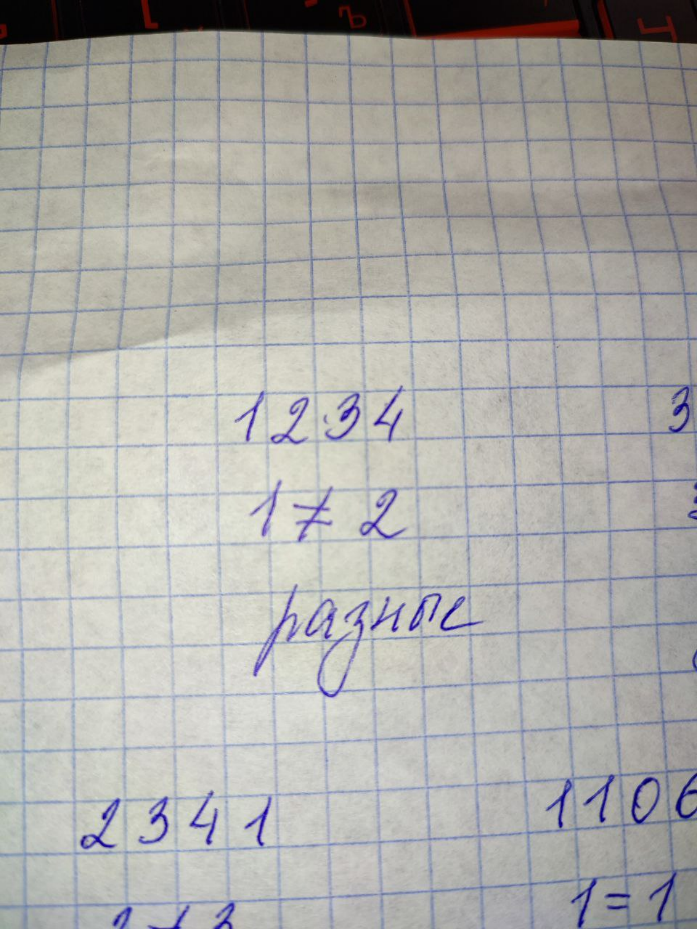 1234 3
1 ≠ 2
разные
2341 1106
2 ≠ 3 1 = 1